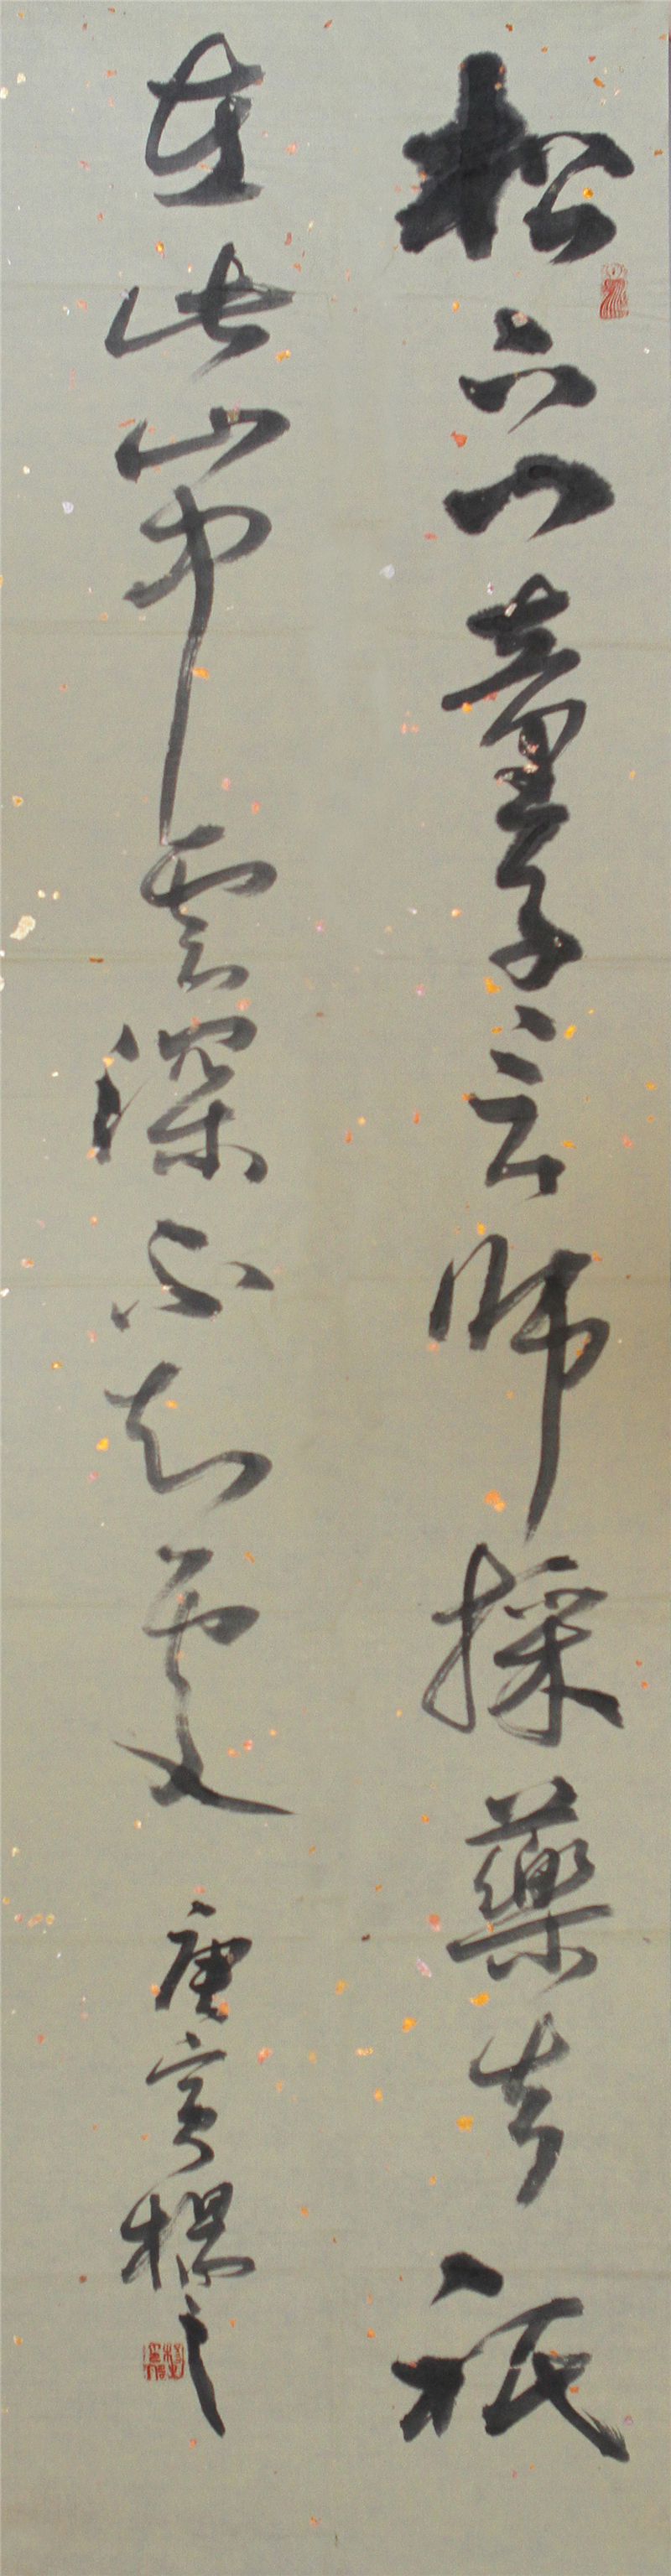 松下問童子言師採藥去祇
在此山中雲深不知處
庚寅樑之